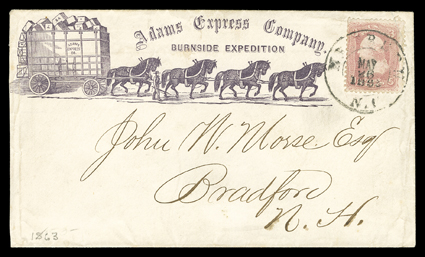 Adams Express Company.
BURNSIDE EXPEDITION
MAY
N.C.
John W. Morse Esq
Bradford
N. H.
1863